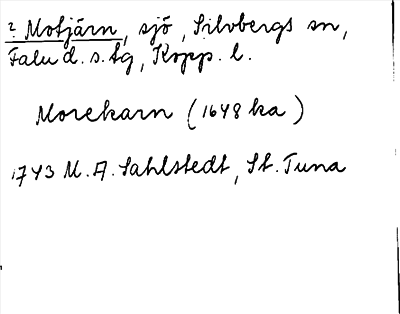 ? Motjärn, sjö, Silvbergs sn,
Falu d. s. tg, Kopp. l.
Morekarn (1648 ka)
1743 M. A. Sahlstedt, St. Tuna